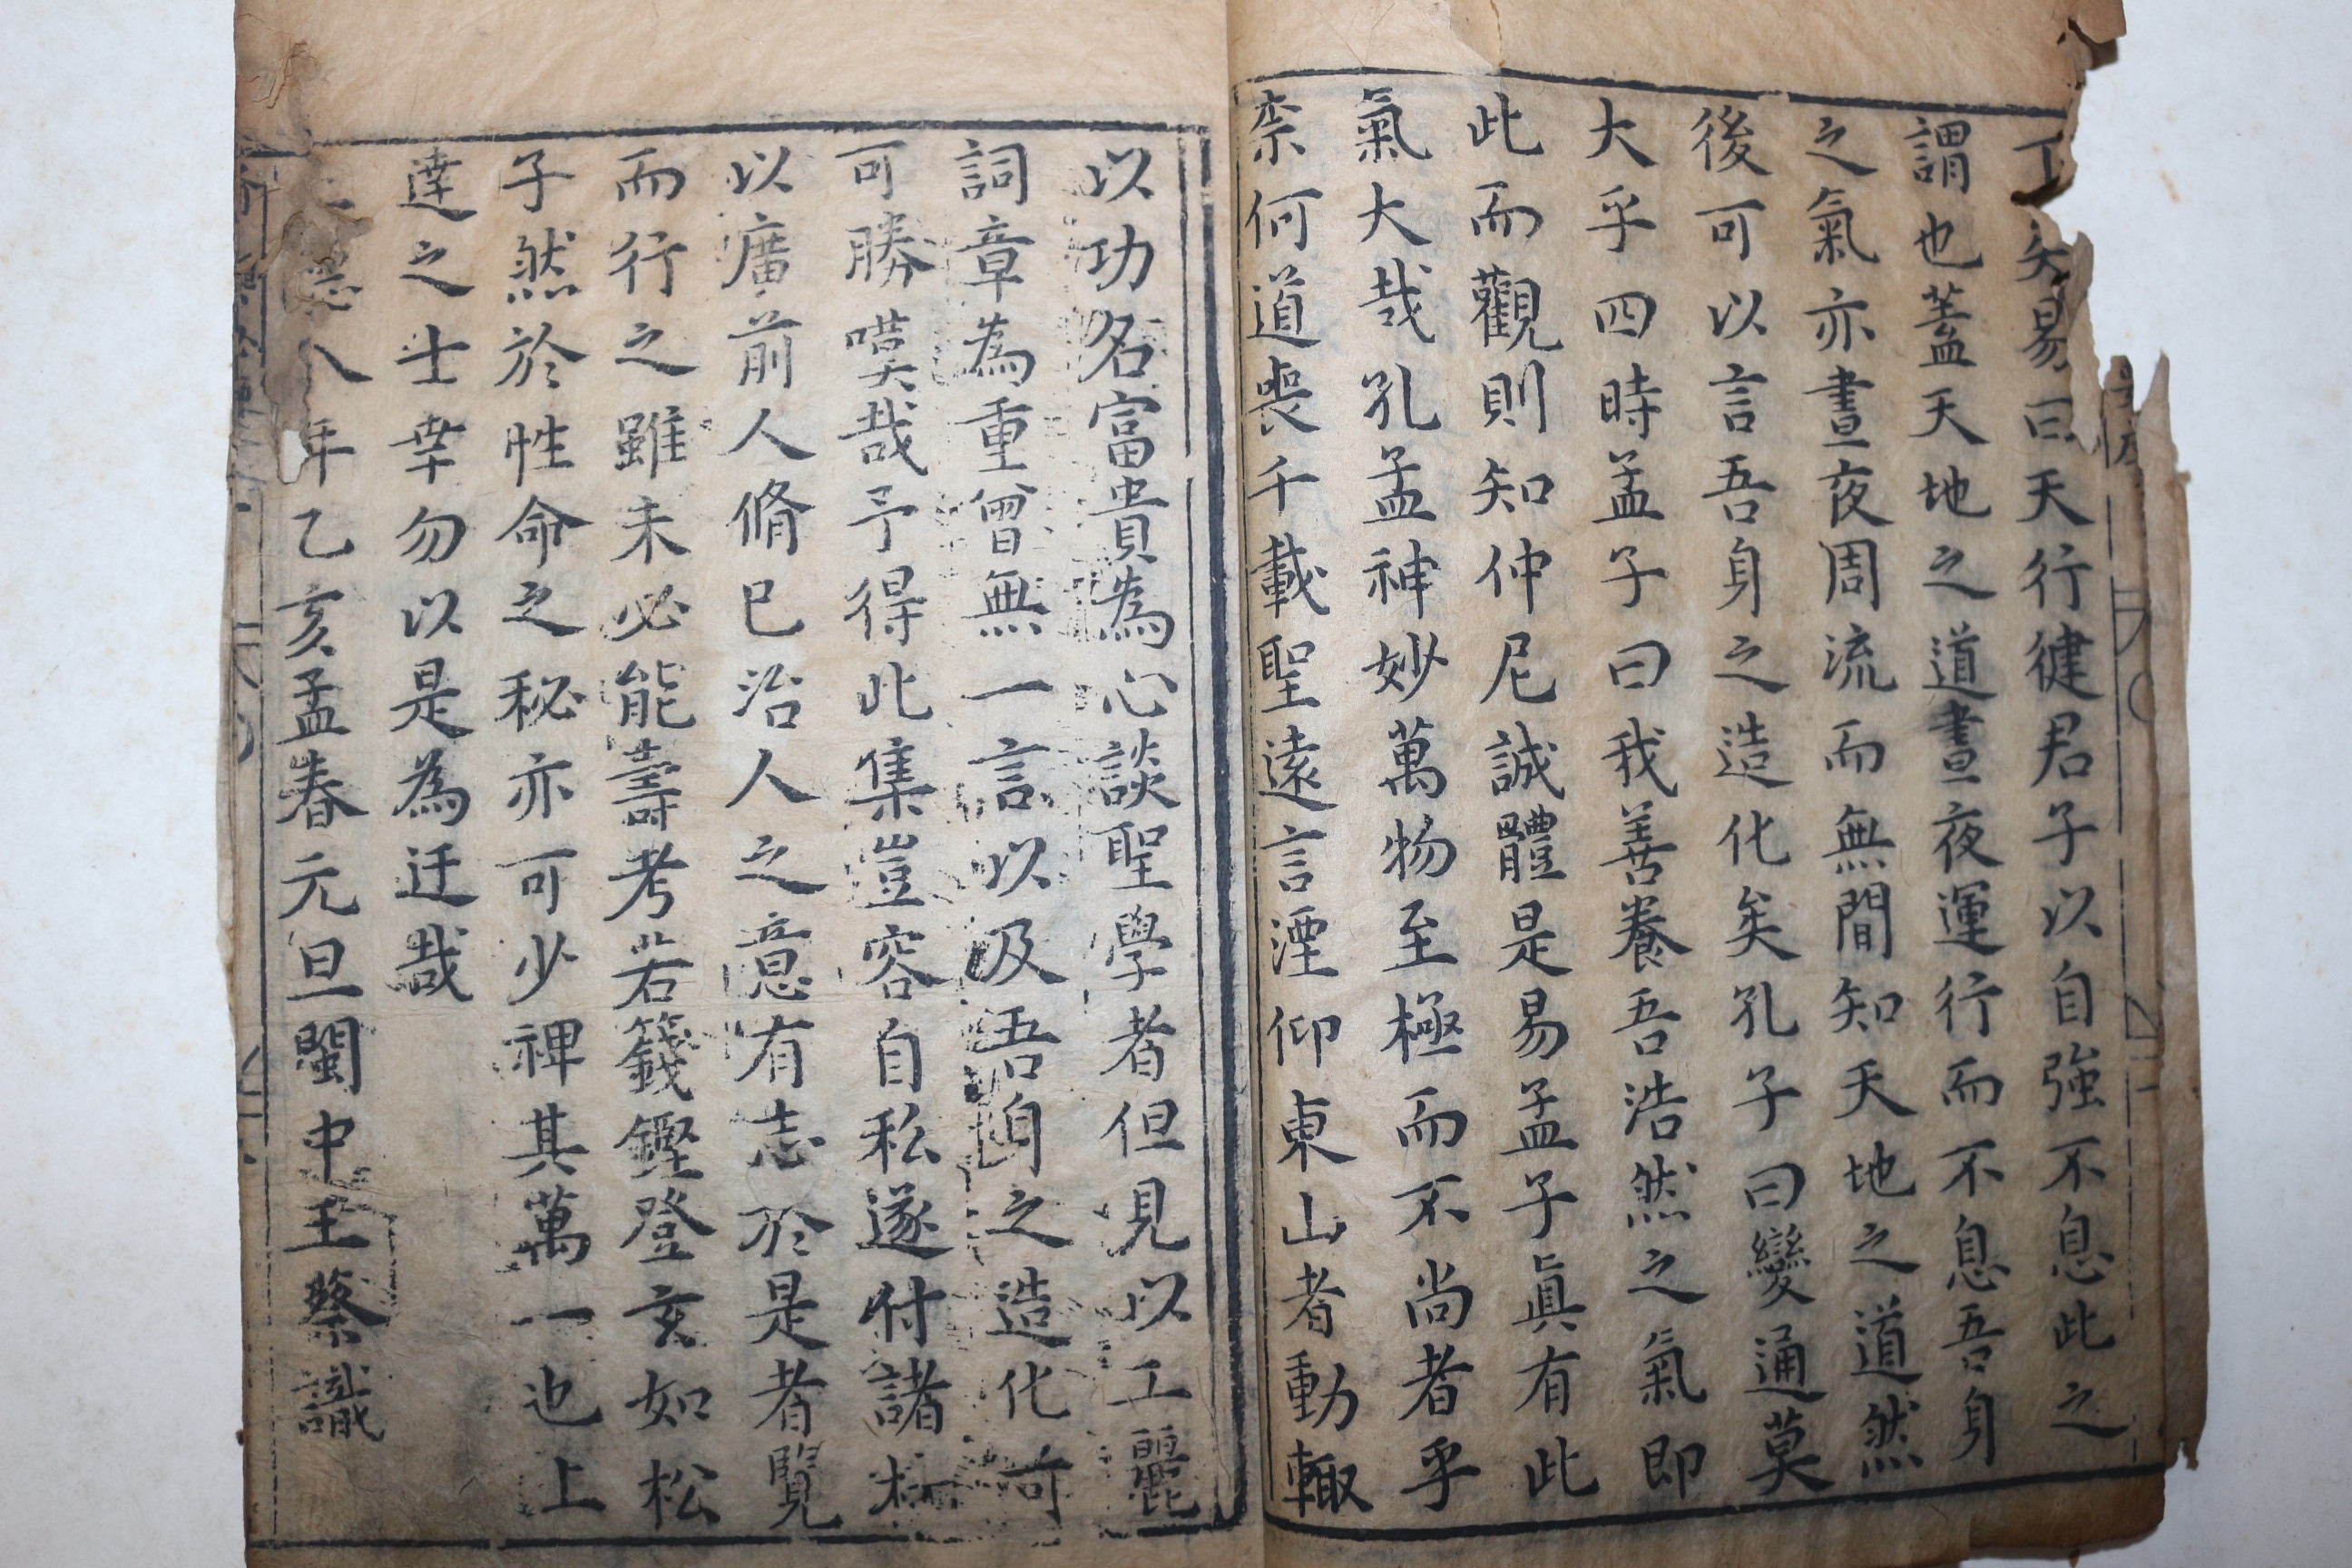 矣易曰天行健君子以自強不息此之
謂也蓋天地之道晝夜運行而不息吾身
之氣亦晝夜周流而無間知天地之道然
後可以言吾身之造化矣孔子曰變通莫
大乎四時孟子曰我善養吾浩然之氣即
此而觀則知仲尼誠體是易孟子眞有此
氣大哉孔孟神妙萬物至極而不尚者乎
柰何道喪千載聖遠言湮仰東山者動輙
以功名富貴為心談聖學者但見以工麗
詞章為重曾無一言以及吾身之造化可
可勝嘆哉予得此集豈容自私遂付諸梓
以廣前人脩已治人之意有志於是者覽
而行之雖未必能壽考若籛鏗登玄如松
子然於性命之秘亦可少裨其萬一也上
達之士幸勿以是為迂哉
八年乙亥孟春元旦閩中王蔡識